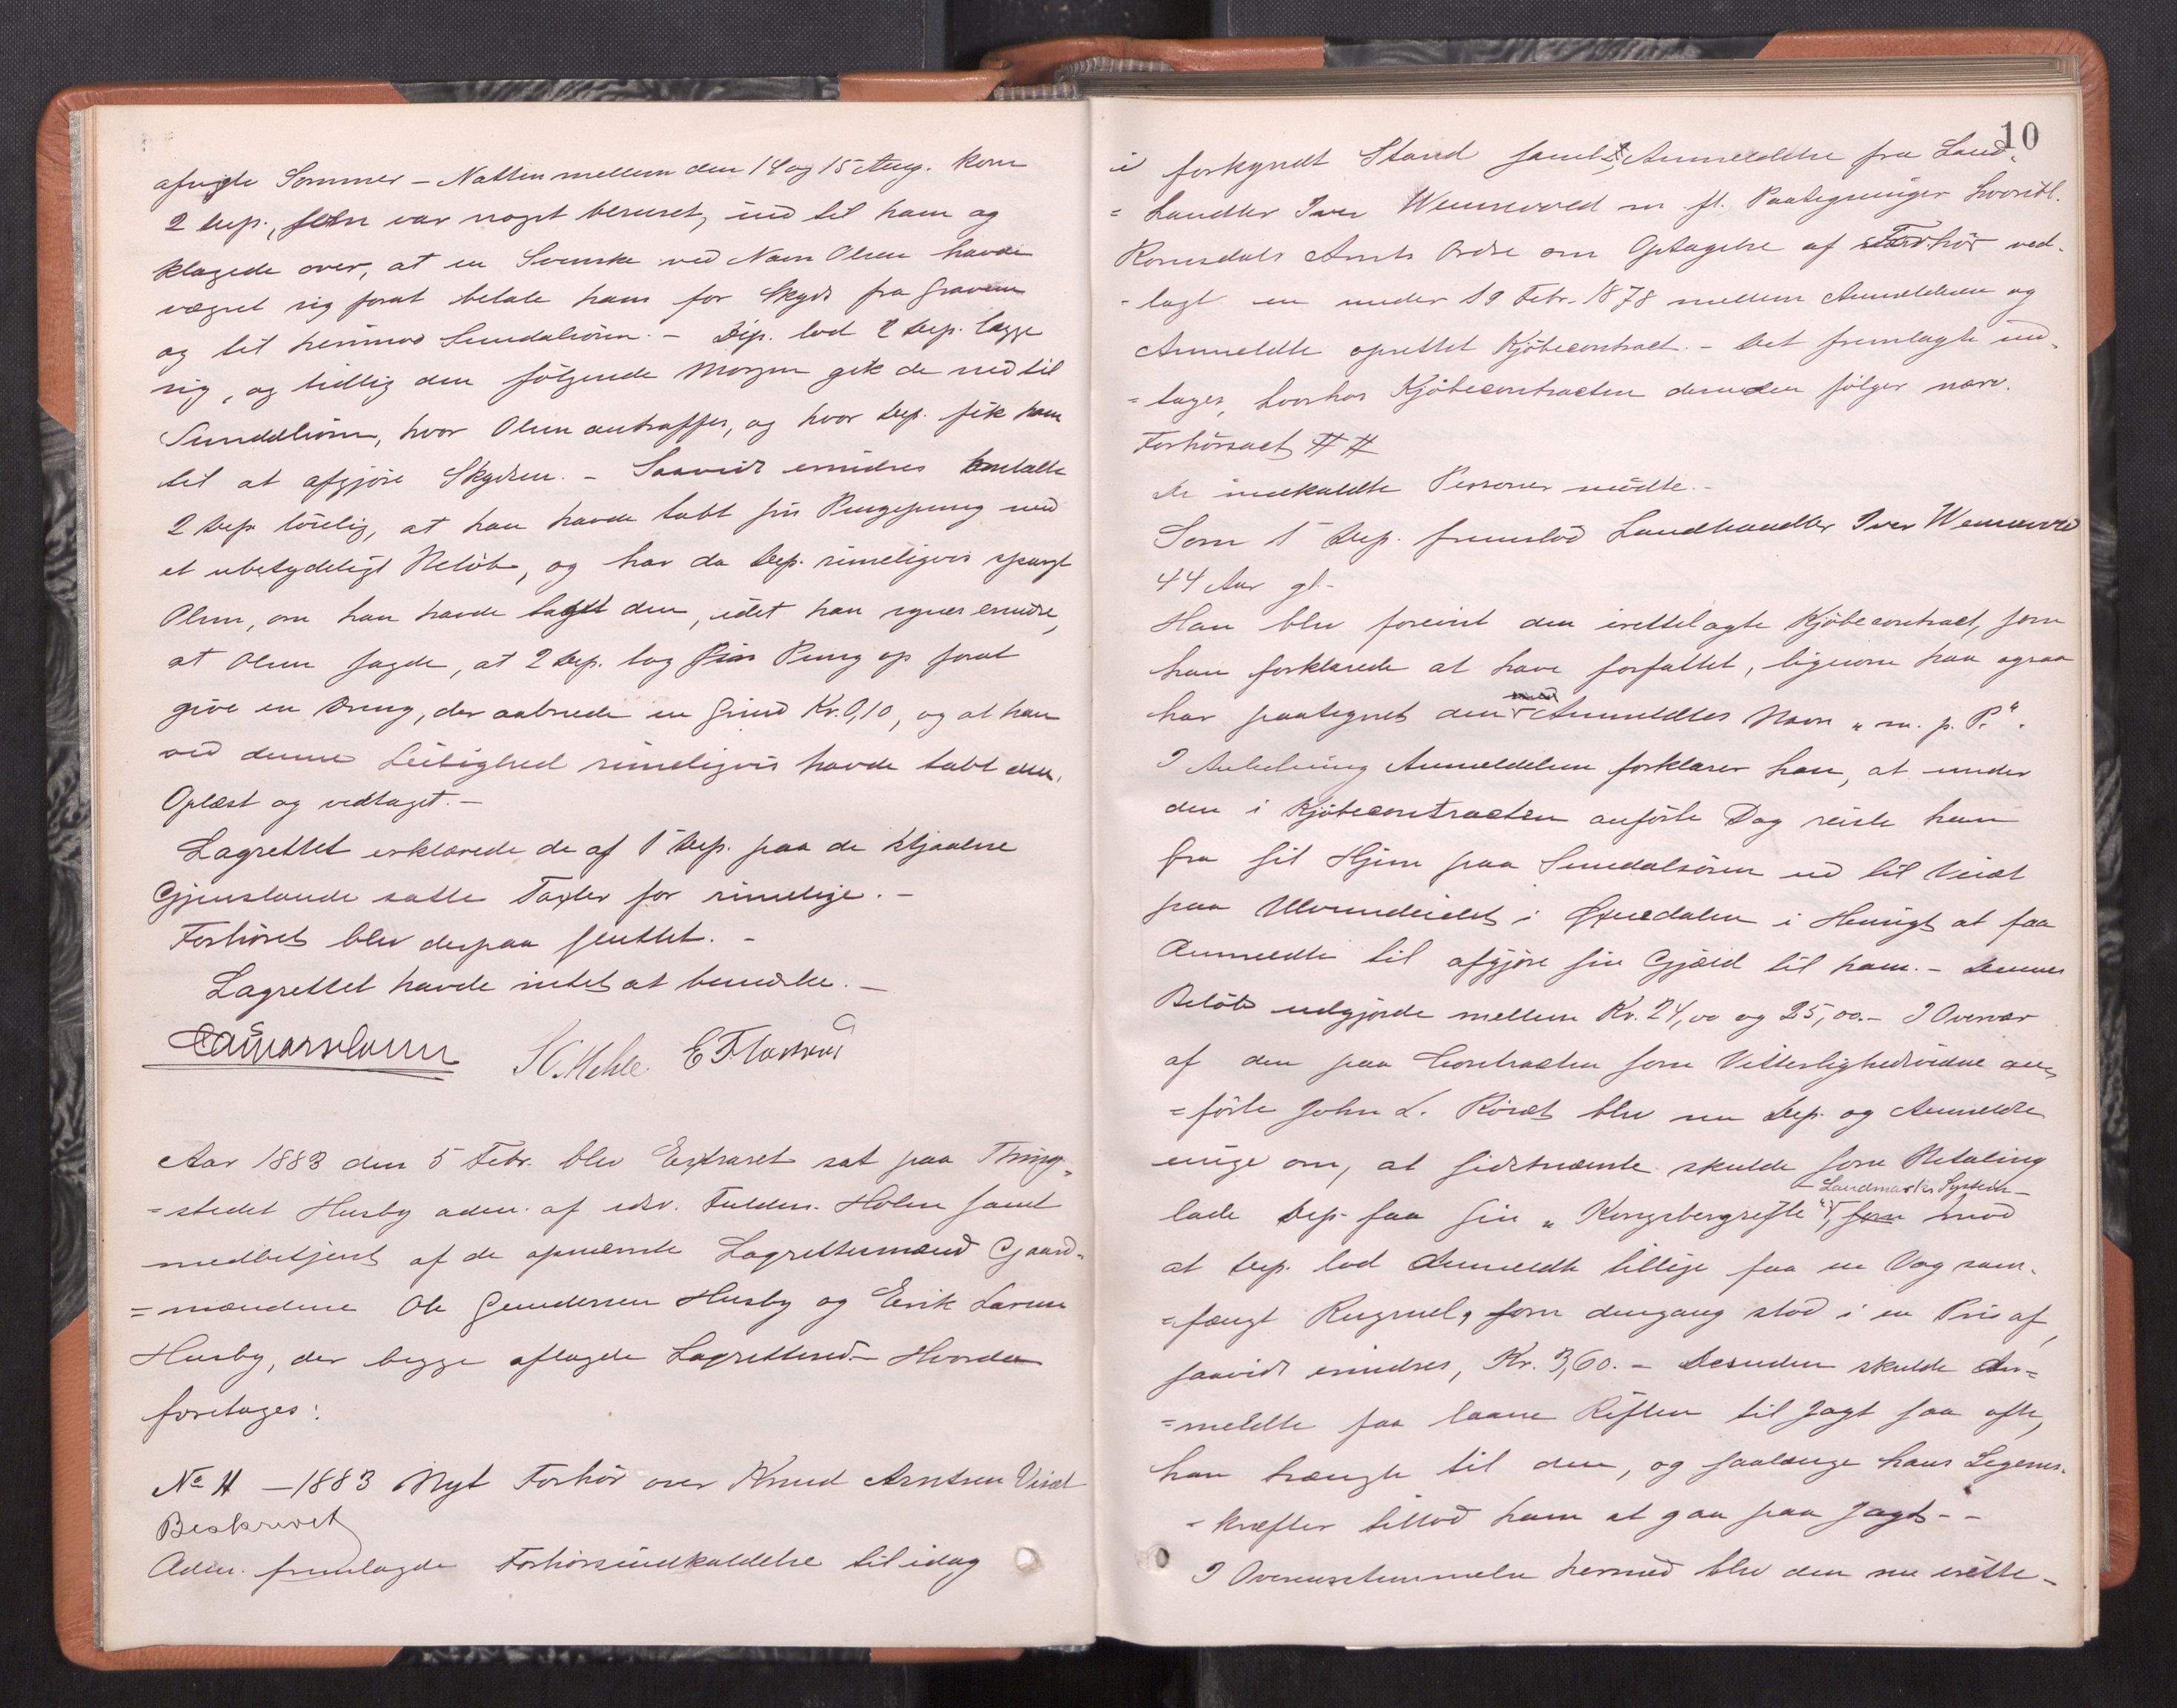 afvigte Sommer - Natten mellem den 14 og 15 Aug. kom
2 Dep., som var noget beruset, ind til ham og
klagede over, at en Svenske ved Navn Olsen havde
vægret sig forat betale ham for Skyds fra Gravem
og til henimod Sundalsøren. - Dep. lod 2 Dep. lægge
sig, og tidlig den følgende Morgen gik de ned til
Sunddlsøren, hvor Olsen antraffes, og hvor Dep. fik ham
til at afgjøre Skydsen. - Saavidt erindres omtalte
2 Dep. løselig, at han havde tabt sin Pengepung med
et ubetydeligt Beløb, og har da Dep. rimeligvis spurgt
Olsen, om han havde taget den, idet han synes erindre,
at Olsen sagde, at 2 Dep. tog sin Pung op forat
give en Dreng, der aabnede en Grind Kr. 0,10, og at han
ved denne Leilighed rimeligvis havde tabt den.
Oplæst og vedtaget. -
Lagrettet erklærede de af 1 Dep. paa de stjaalne
Gjenstande satte Taxter for rimelige. -
Forhøret blev derpaa sluttet. -
Lagrettet havde intet at bemærke. -
E
Aar 1883 den 5 Febr. blev Extraret sat paa Thing-
=stedet Husby adm. af edsv. Fuldm. Holm samt
medbetjent af de opnævnte Lagrettesmænd Gaard-
=mændene Ole Gundersen Husby og Erik Larsen
Husby, der begge aflagde Lagretteed. - Hvorda
foretages:
No 4 - 1883 Nyt Forhør over Knud Arntsen Viset
Beskrevet
Adm. fremlagde Forhørsindkaldelse til idag
10
i forkyndt Stand samt Anmeldelse fra Land-
=handler Iver Wennevold m. fl. Paategninger hvoribl.
Romsdals Amts Ordre om Optagelse af Forhør ved-
=lagt en under 19 Febr. 1878 mellem Anmelderen og
Anmeldte oprettet Kjøbecontract. - Det fremlagte ind-
=tages, hvorhos Kjøbecontracten desuden følger nærv.
Forhørsact # #
De indkaldte Personer mødte. -
Som 1 Dep. fremstod Landhandler Iver Wennevold
44 Aar gl. -
Han blev forevist den irettelagte Kjøbecontract, som
han forklarede at have forfattet, ligesom han ogsaa
har paategnet den med Anmeldtes Navn "m. p. P."
I Anledning Anmeldelsen forklarer han, at under
den i Kjøbecontracten anførte Dag reiste han
fra sit Hjem paa Sundalsøren ud til Viset
paa i Øxendalen i Hensigt at faa
Anmeldte til afgjøre sin Gjæld til ham. - Dennes
Beløb udgjorde mellem Kr. 24,00 og 25,00. - I Overvær
af den paa Contracten som Vitterlighedsvidne an-
=førte John L. blev nu Dep. og Anmeldte
enige om, at sidstnævnte skulde som Betaling
lade Dep. faa sin "Kongsbergrifle", Landmarks System - som mod
at Dep. lod Anmeldte tillige faa en Vog sam-
=fængt Rugmel, som dengang stod i en Pris af,
saavidt erindres, Kr. 3,60. - Desuden skulde An-
=meldte faa laane Riflen til Jagt saa ofte,
han trængte til den, og saalænge hans Legems-
=kræfter tillod ham at gaa paa Jagt. -
I Overensstemmelse hermed blev den nu irette-